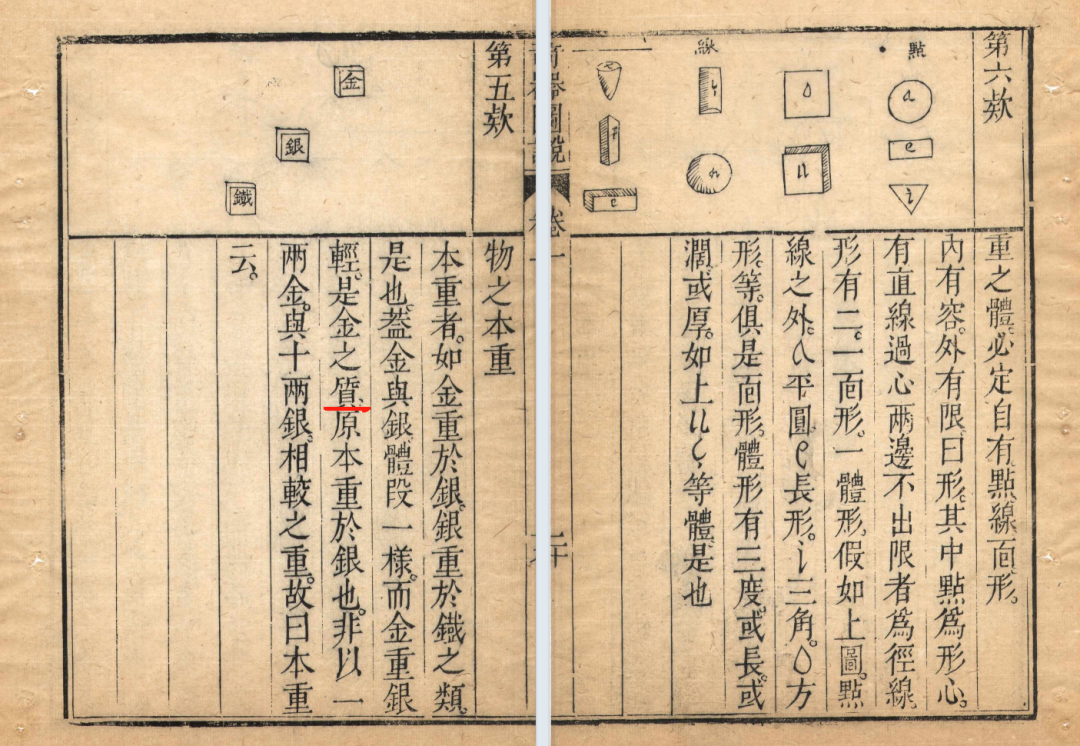 第六欵
點
線
a
e
i
o
重之體。必定自有點線面形。
內有容。外有限。曰形。其中點爲形心。
有直線過心兩邊不出限者爲徑線
形有二。一面形。一體形。假如上圖。點
線之外。a平圓e長形。i三角。o方
形。等。俱是面形。體形有三度。或長。或
濶。或厚。如上等體是也
器圖說
卷一
第五欵
金
銀
鐵
物之本重
本重者。如金重於銀。銀重於鐵之類。
是也。葢金與銀體段一樣。而金重銀
輕。是金之質。原本重於銀也。非以一
兩金。與十兩銀。相較之重。故曰本重
云。